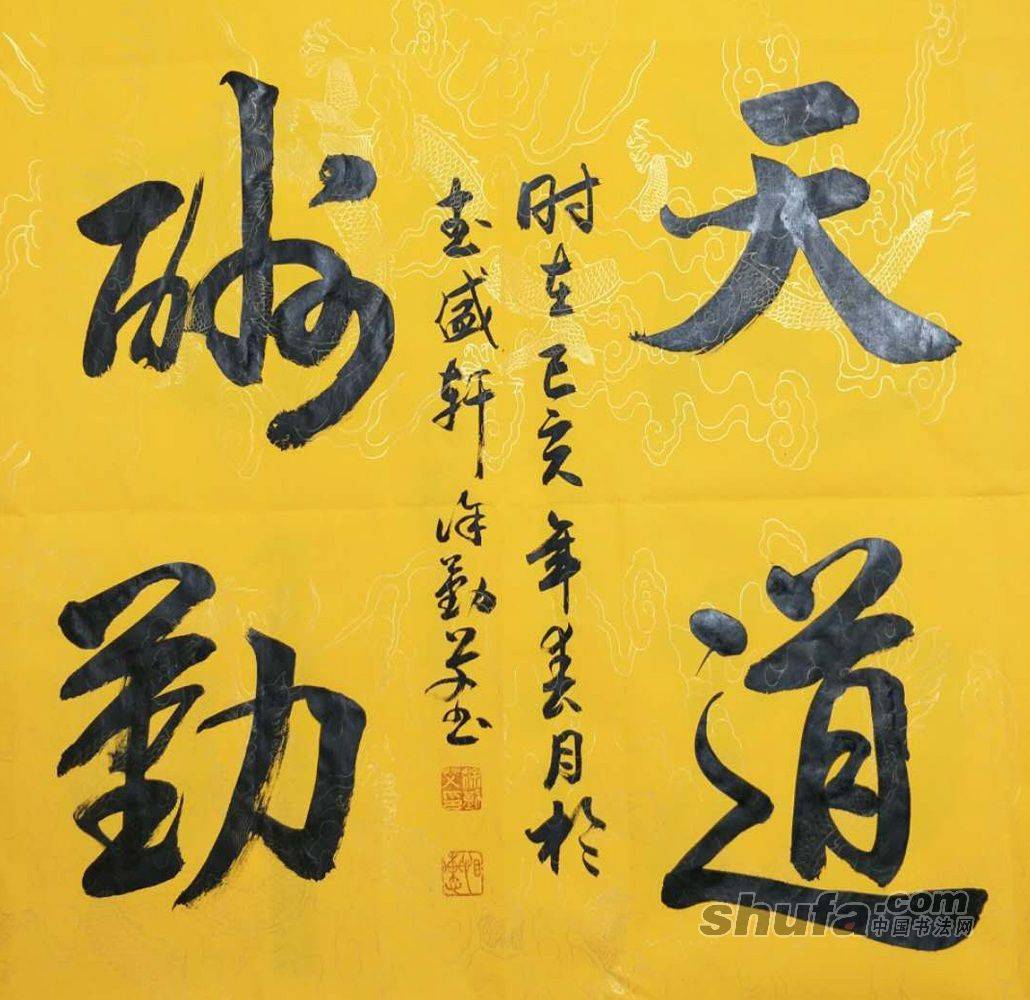 天道
酬勤
时在己亥年春月於
盛轩徐勤学书
shufa.com
中国书法网